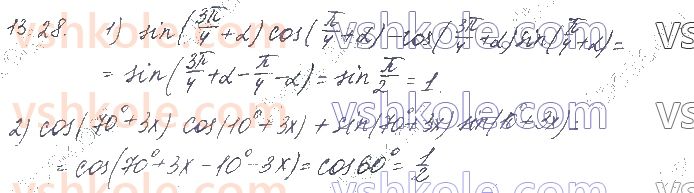 13.28. 1) sin(3π/4+α)cos(π/4+α)-cos(3π/4+α)sin(π/4+α)=
=sin(3π/4+α-π/4-α)=sin π/2=1.
2) cos(70°+3x) cos(10°+3x)+sin(70°+3x) sin(10°+3x)=
=cos(70°+3x-10°-3x)=cos60°=1/2